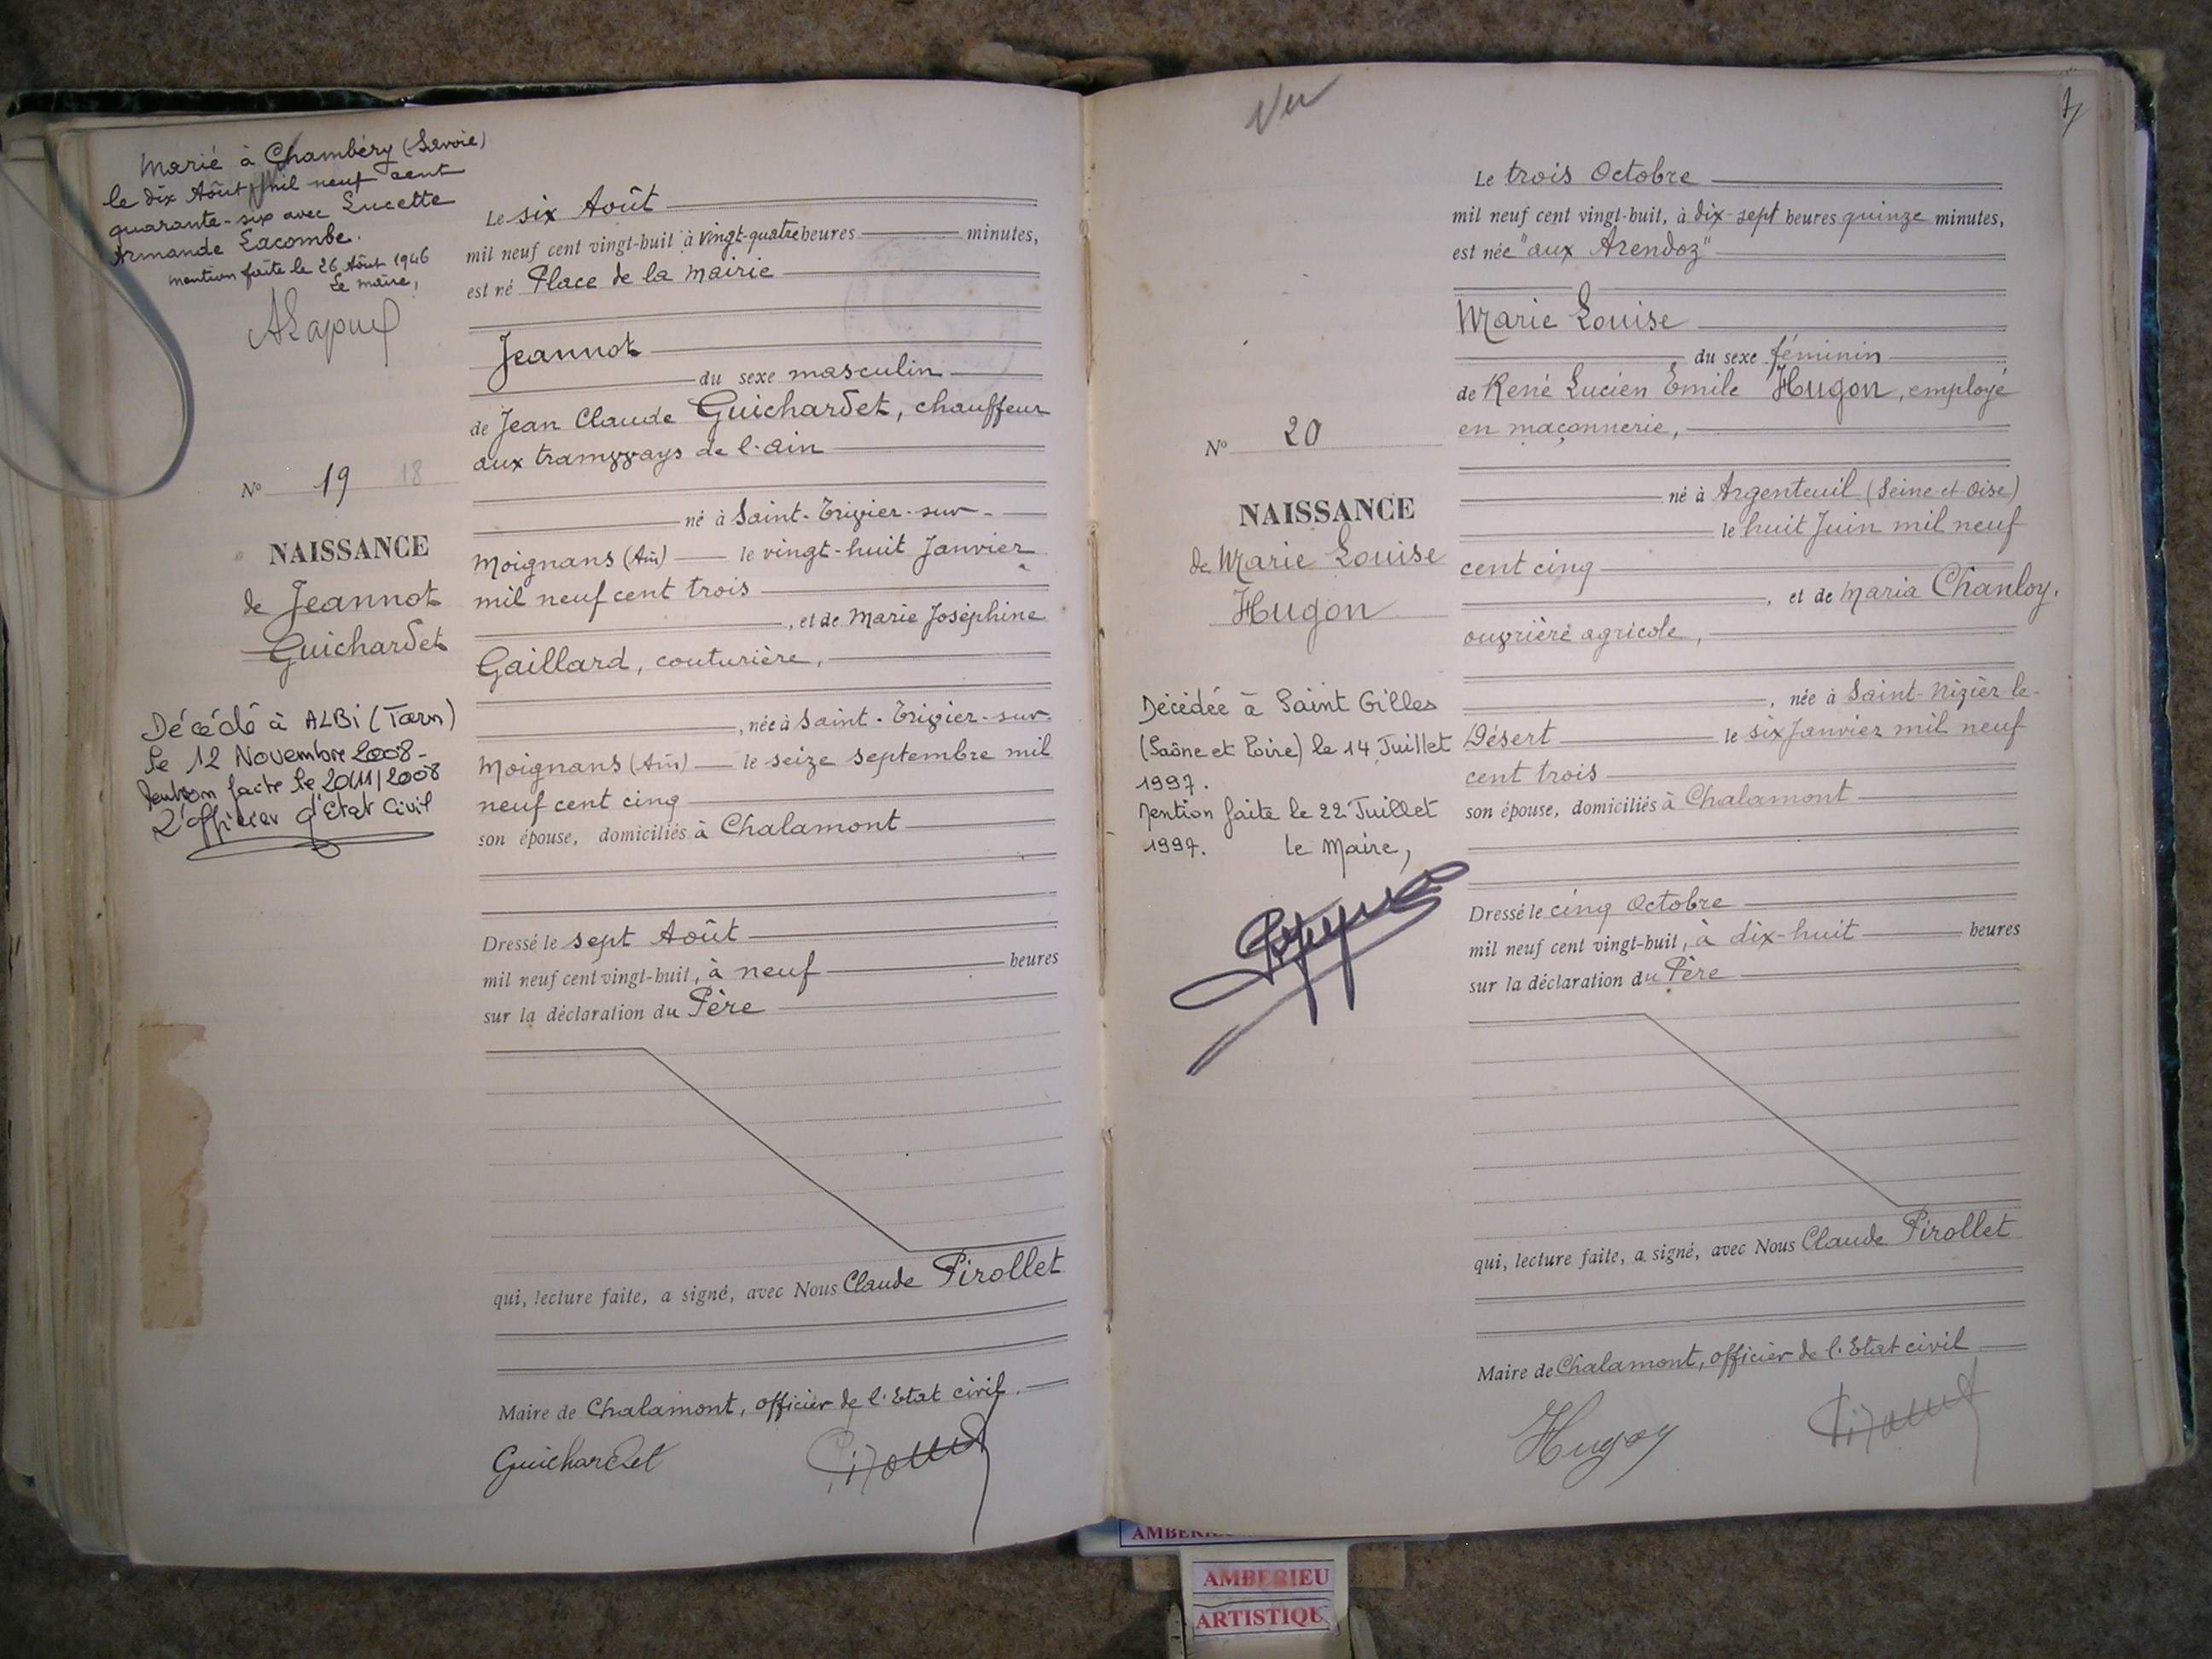 Marié à Chambéry (Savoie)
le dix Août mil neuf cent
quarante-six avec Lucette
Armande Lacombe.
mention faite le 26 Août 1946
Le maire,
N° 19 18
NAISSANCE
de Jeannot
Guichardet
Décédé à ALBI (Tarn)
le 12 Novembre 2008-
Mention faite le 20/11/2008
L'officier d'Etat Civil
Le six Août
mil neuf cent vingt-huit à vingt-quatre heures minutes,
est né Place de la Mairie
Jeannot
du sexe masculin
de Jean Claude Guichardet, chauffeur
aux tramways de l'ain
né à Saint-Trivier-sur-
Moignans (Ain) le vingt-huit Janvier
mil neuf cent trois
, et de Marie Joséphine
Gaillard, couturière,
, née à Saint-Trivier-sur-
Moignans (Ain) le seize septembre mil
neuf cent cinq
son épouse, domiciliés à Chalamont
Dressé le sept Août
mil neuf cent vingt-huit, à neuf heures
sur la déclaration du Père
qui, lecture faite, a signé, avec Nous Claude Pirollet
Maire de Chalamont, officier de l'Etat civil.
Guichardet
Vu
N° 20
NAISSANCE
de Marie Louise
Hugon
Décédée à Saint Gilles
(Saône et Loire) le 14 Juillet
1997.
Mention faite le 22 Juillet
1997. Le Maire,
Le trois Octobre
mil neuf cent vingt-huit, à dix-sept heures quinze minutes,
est née "aux Arendoz"
Marie Louise
du sexe féminin
de René Lucien Emile Hugon, employé
en maçonnerie,
né à Argenteuil (Seine et Oise)
le huit Juin mil neuf
cent cinq
, et de Maria Chanloy,
ouvrière agricole,
, née à Saint-Nizier-le-
Désert le six Janvier mil neuf
cent trois
son épouse, domiciliés à Chalamont
Dressé le cinq Octobre
mil neuf cent vingt-huit, à dix-huit heures
sur la déclaration du Père
qui, lecture faite, a signé, avec Nous Claude Pirollet
Maire de Chalamont, officier de l'Etat civil
Hugon
AMBERIEU
ARTISTIQU